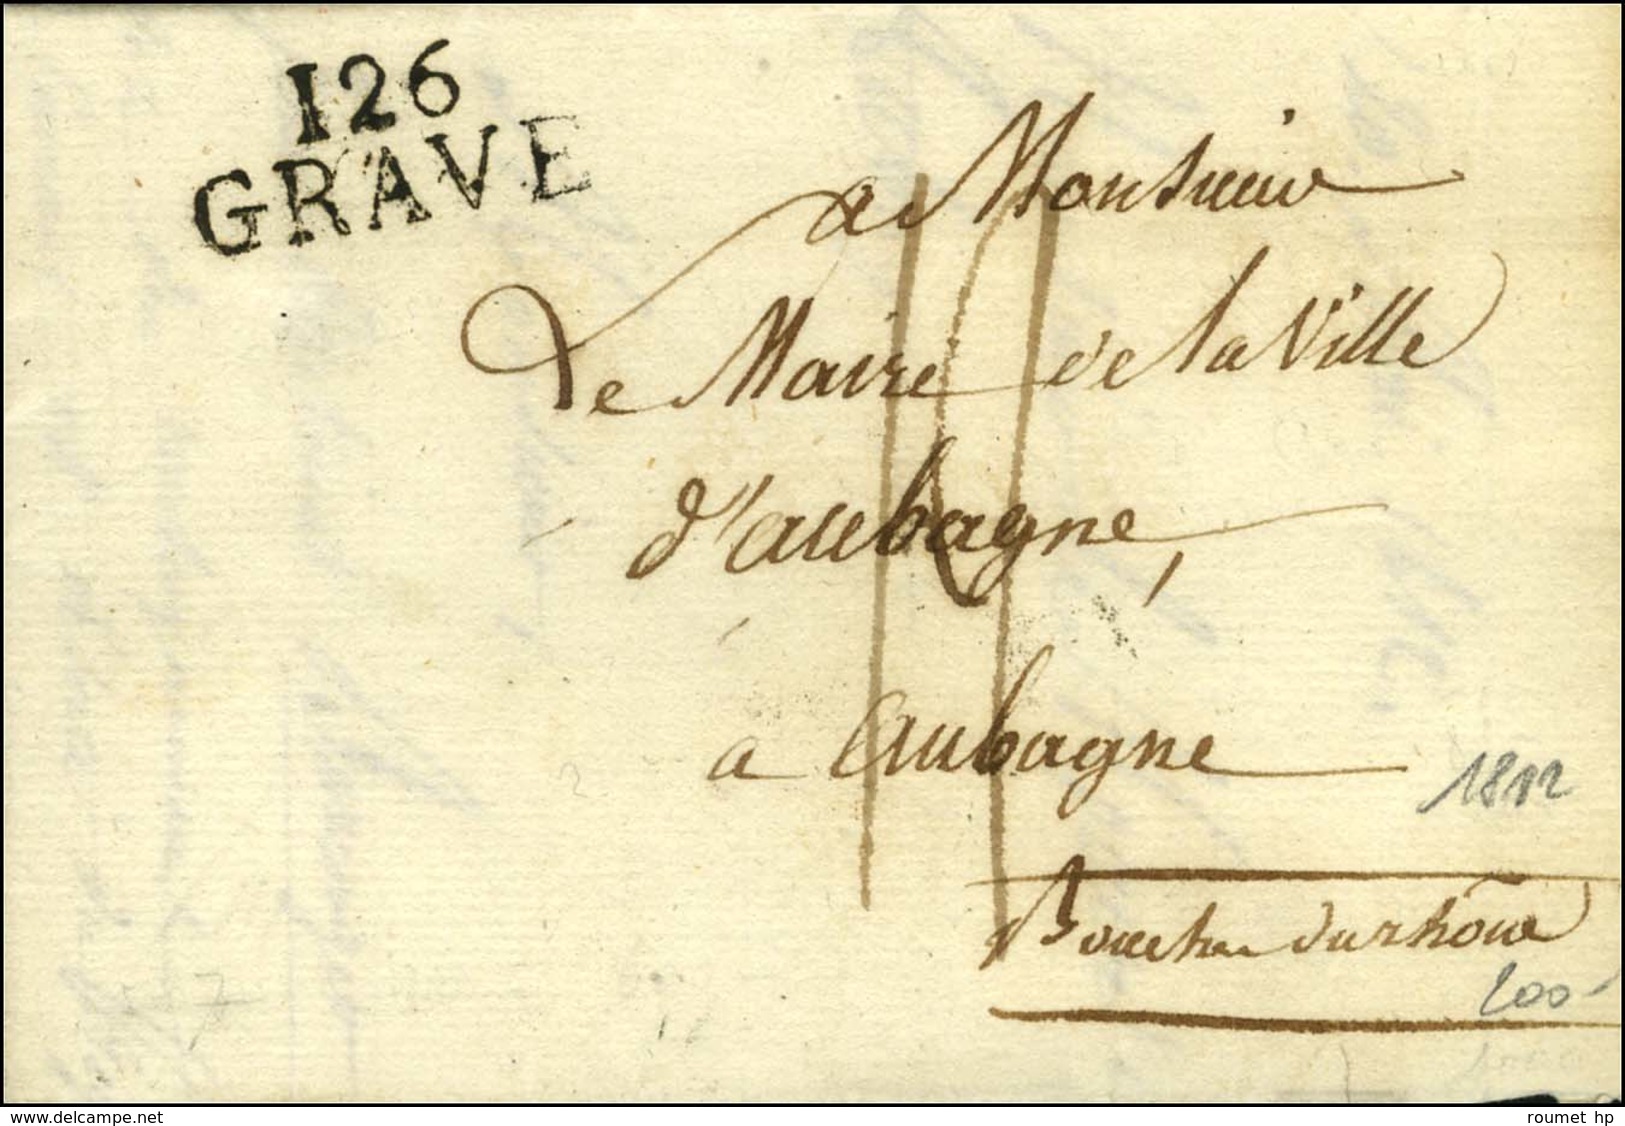 126
GRAVE
a Monsieur
Le Maire de la Ville
d'aubagne,
a aubagne
1812
Bouches du rhône
200-
www.delcampe.net
roumet hp